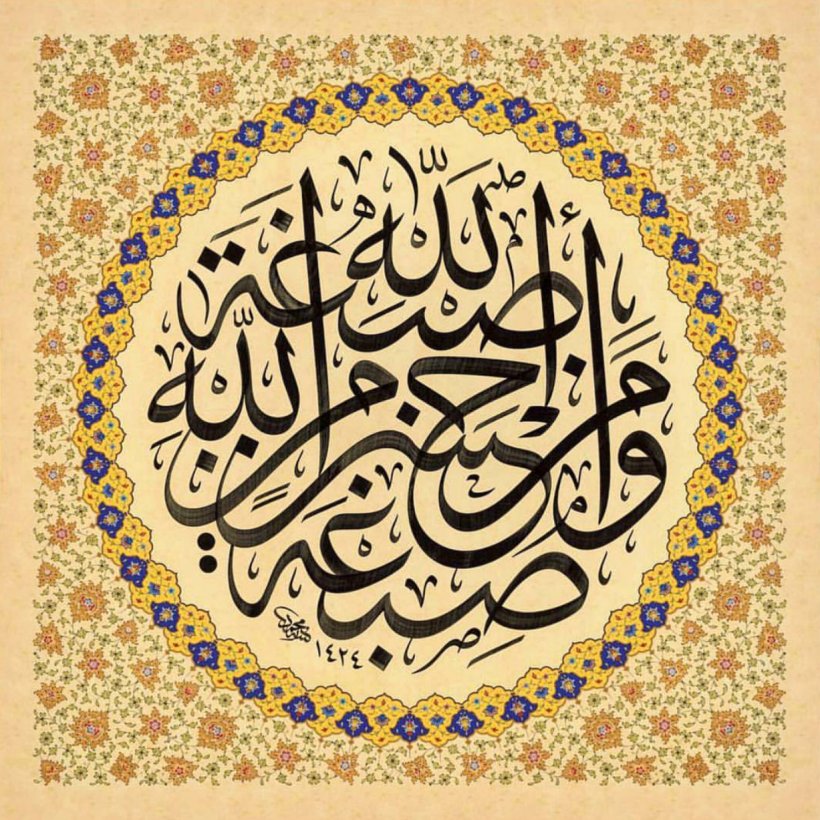 صِبْغَةَ اللَّهِ وَمَنْ أَحْسَنُ مِنَ اللَّهِ صِبْغَةً
١٤٢٤